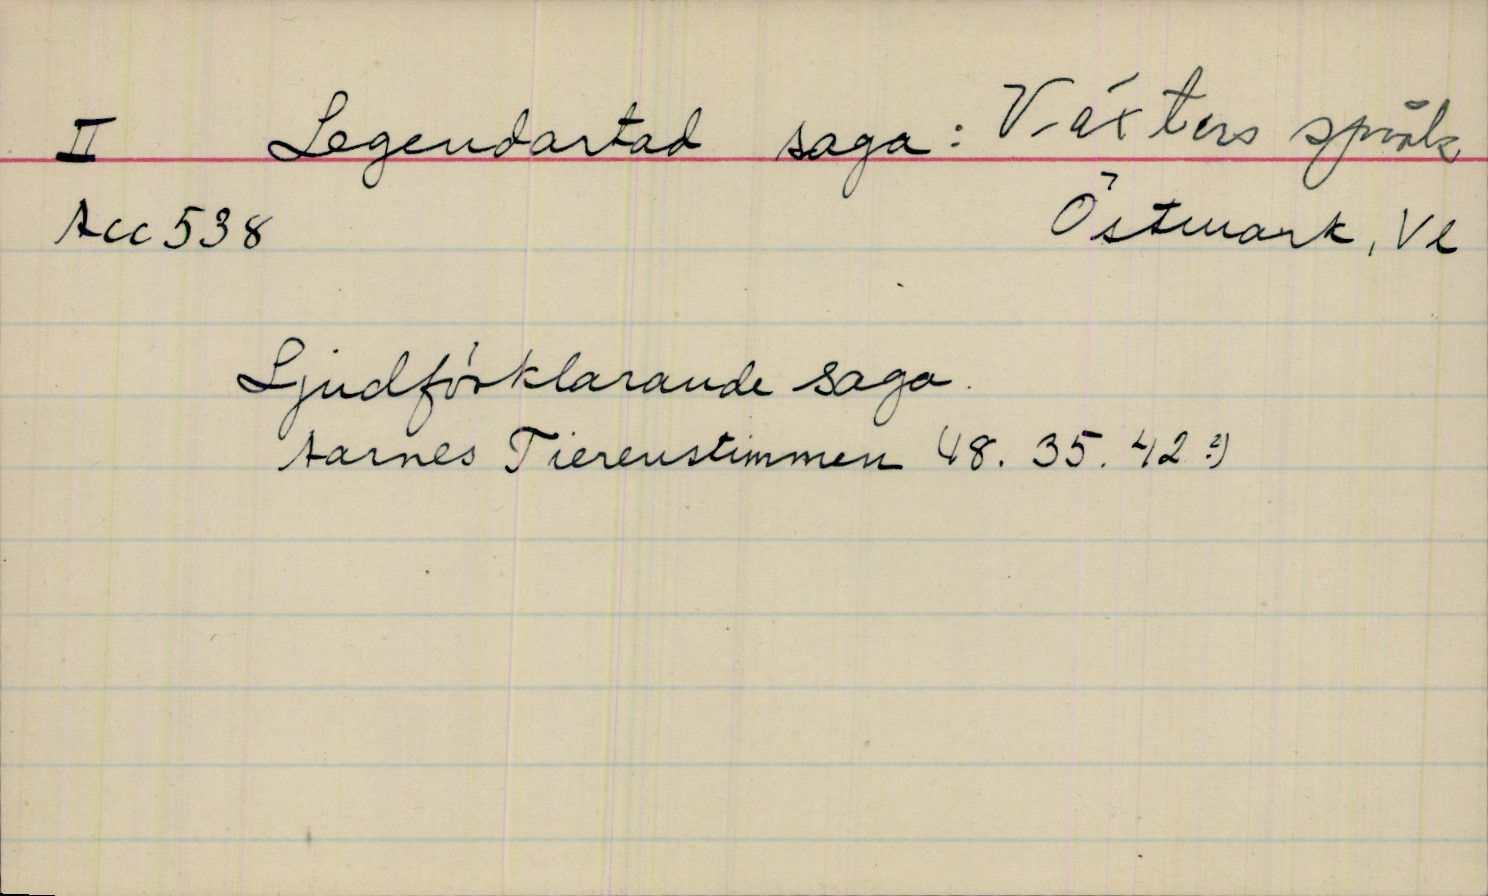 II Legendartad saga: Växters språk
Acc 538 Östmark, Vl
Ljudförklarande saga.
Aarnes Tierenstimmen 48. 35. 42 ?)